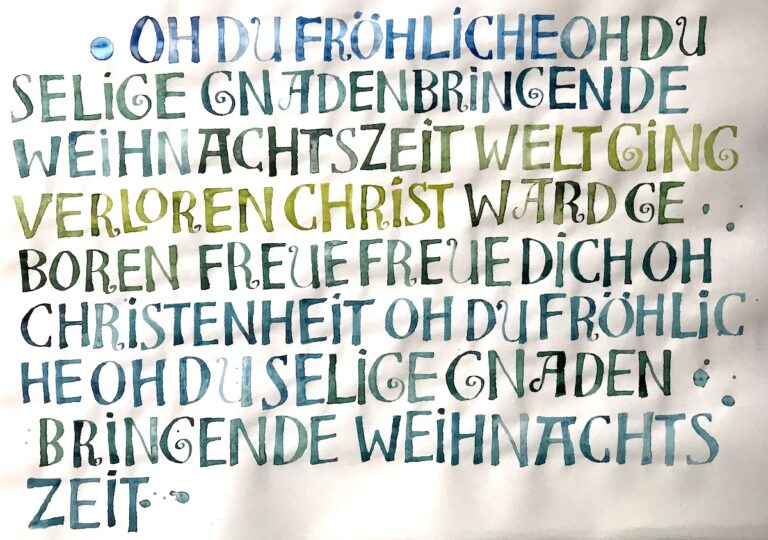 OH DU FRÖHLICHE OH DU
SELIGE GNADENBRINGENDE
WEIHNACHTSZEIT WELT GING
VERLOREN CHRIST WARD GE
BOREN FREUE FREUE DICH OH
CHRISTENHEIT OH DU FRÖHLIC
HE OH DU SELIGE GNADEN
BRINGENDE WEIHNACHTS
ZEIT